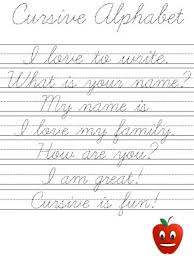 Cursive Alphabet
I love to write.
What is your name?
My name is
I love my family.
How are you?
I am great!
Cursive is fun!